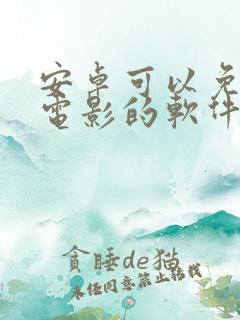 安卓可以免
電影的軟件
貪睡de猫
未经同意禁止转载